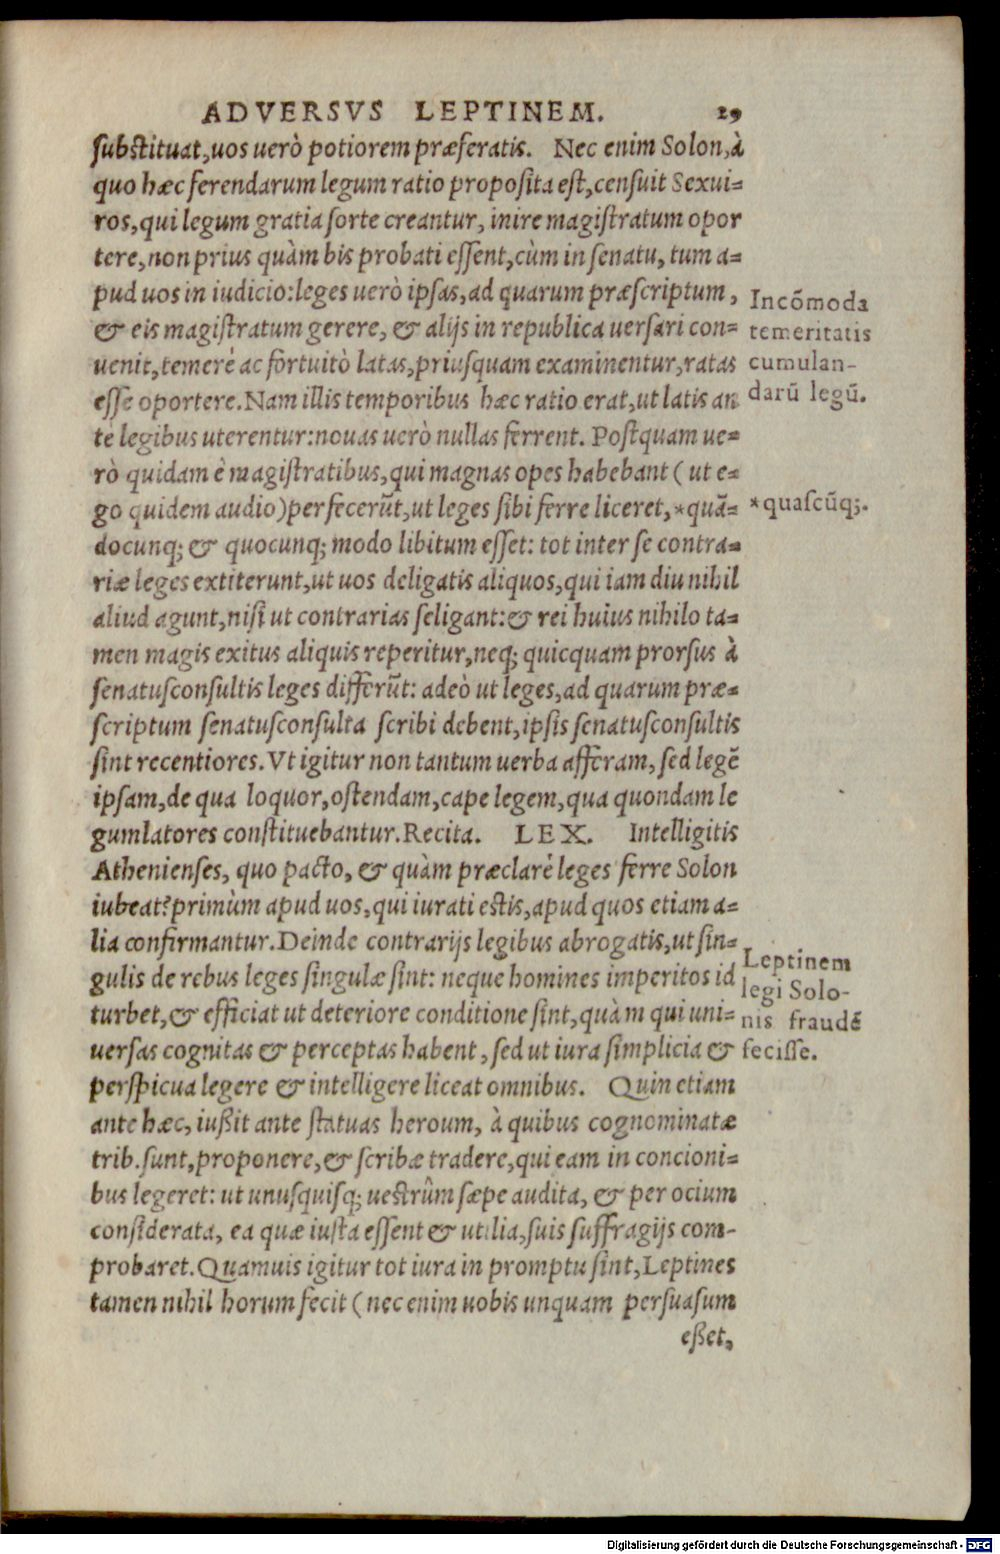 ADVERSVS LEPTINEM. 29
substituat,uos uerò potiorem præferatis. Nec enim Solon,à
quo hæc ferendarum legum ratio proposita est,censuit Sexui=
ros,qui legum gratia sorte creantur, inire magistratum opor
tere,non prius quàm bis probati essent,cùm in senatu, tum a=
pud uos in iudicio:leges uerò ipsas,ad quarum præscriptum,
& eis magistratum gerere, & alijs in republica uersari con=
uenit,temerè ac fortuitò latas,priusquam examinentur,ratas
esse oportere.Nam illis temporibus hæc ratio erat,ut latis an
te legibus uterentur:nouas uerò nullas ferrent. Postquam ue=
rò quidam è magistratibus,qui magnas opes habebant (ut e=
go quidem audio)perfecerūt,ut leges sibi ferre liceret,*quā=
docunq; & quocunq; modo libitum esset: tot inter se contra=
riæ leges extiterunt,ut uos deligatis aliquos,qui iam diu nihil
aliud agunt,nisi ut contrarias seligant:& rei huius nihilo ta=
men magis exitus aliquis reperitur,neq; quicquam prorsus à
senatusconsultis leges differūt: adeò ut leges,ad quarum præ=
scriptum senatusconsulta scribi debent,ipsis senatusconsultis
sint recentiores.Vt igitur non tantum uerba afferam, sed legē
ipsam,de qua loquor,ostendam,cape legem,qua quondam le
gumlatores constituebantur.Recita. LEX. Intelligitis
Athenienses, quo pacto, & quàm præclarè leges ferre Solon
iubeat?primùm apud uos,qui iurati estis,apud quos etiam a=
lia confirmantur.Deinde contrarijs legibus abrogatis,ut sin=
gulis de rebus leges singulæ sint: neque homines imperitos id
turbet,& efficiat ut deteriore conditione sint,quàm qui uni=
uersas cognitas & perceptas habent, sed ut iura simplicia &
perspicua legere & intelligere liceat omnibus. Quin etiam
ante hæc, iußit ante statuas heroum, à quibus cognominatæ
trib.sunt,proponere,& scribæ tradere,qui eam in concioni=
bus legeret: ut unusquisq; uestrûm sæpe audita, & per ocium
considerata, ea quæ iusta essent & utilia,suis suffragijs com-
probaret.Quamuis igitur tot iura in promptu sint,Leptines
tamen nihil horum fecit (nec enim uobis unquam persuasum
eßet,
Incōmoda
temeritatis
cumulan-
darū legū.
*quascūq;.
Leptinem
legi Solo-
nis fraudē
fecisse.
Digitalisierung gefördert durch die Deutsche Forschungsgemeinschaft - DFG